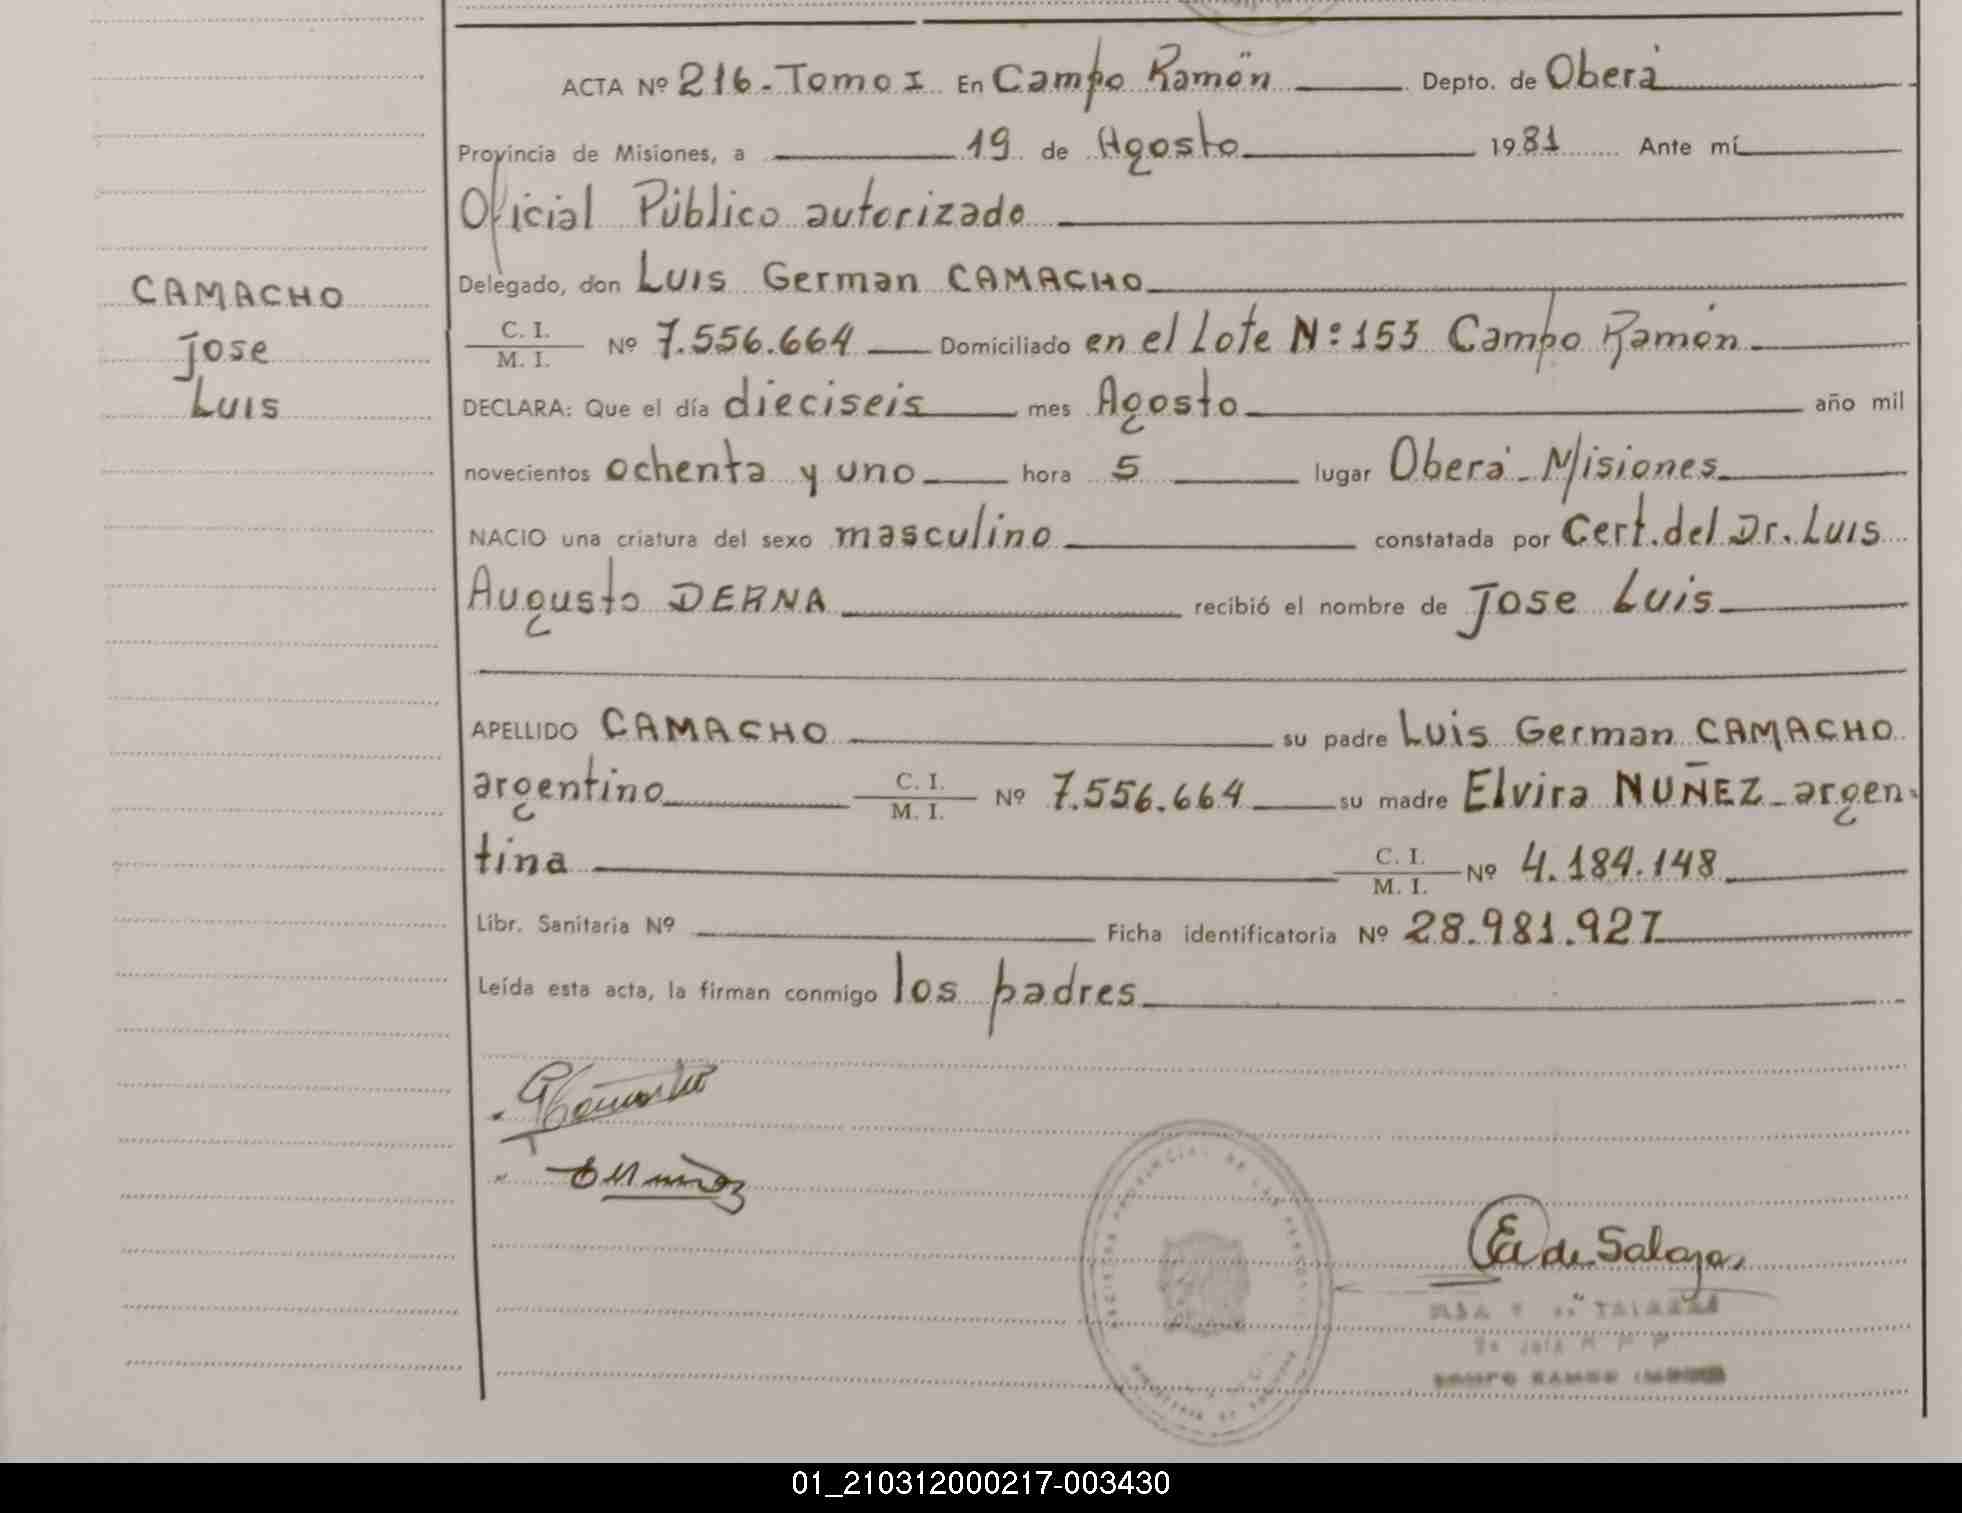 ACTA Nº 216. Tomo I En Campo Ramón Depto. de Oberá
Provincia de Misiones, a 19 de Agosto 1981 Ante mí
Oficial Público autorizado
CAMACHO
Jose
Luis
Delegado, don Luis German CAMACHO
C. I.
M. I.
Nº 7.556.664 Domiciliado en el Lote Nº: 153 Campo Ramón
DECLARA: Que el día dieciseis mes Agosto año mil
novecientos ochenta y uno hora 5 lugar Oberá - Misiones
NACIO una criatura del sexo masculino constatada por Cert. del Dr. Luis
Augusto DERNA recibió el nombre de Jose Luis
APELLIDO CAMACHO su padre Luis German CAMACHO
argentino C. I. M. I. Nº 7.556.664 su madre Elvira NUÑEZ - argen-
tina C. I. M. I. Nº 4.184.148
Libr. Sanitaria Nº Ficha identificatoria Nº 28.981.927
Leída esta acta, la firman conmigo los padres
PROVINCIAL DE LAS PERSONAS
de Salazar
CAMPO RAMON
01_210312000217-003430